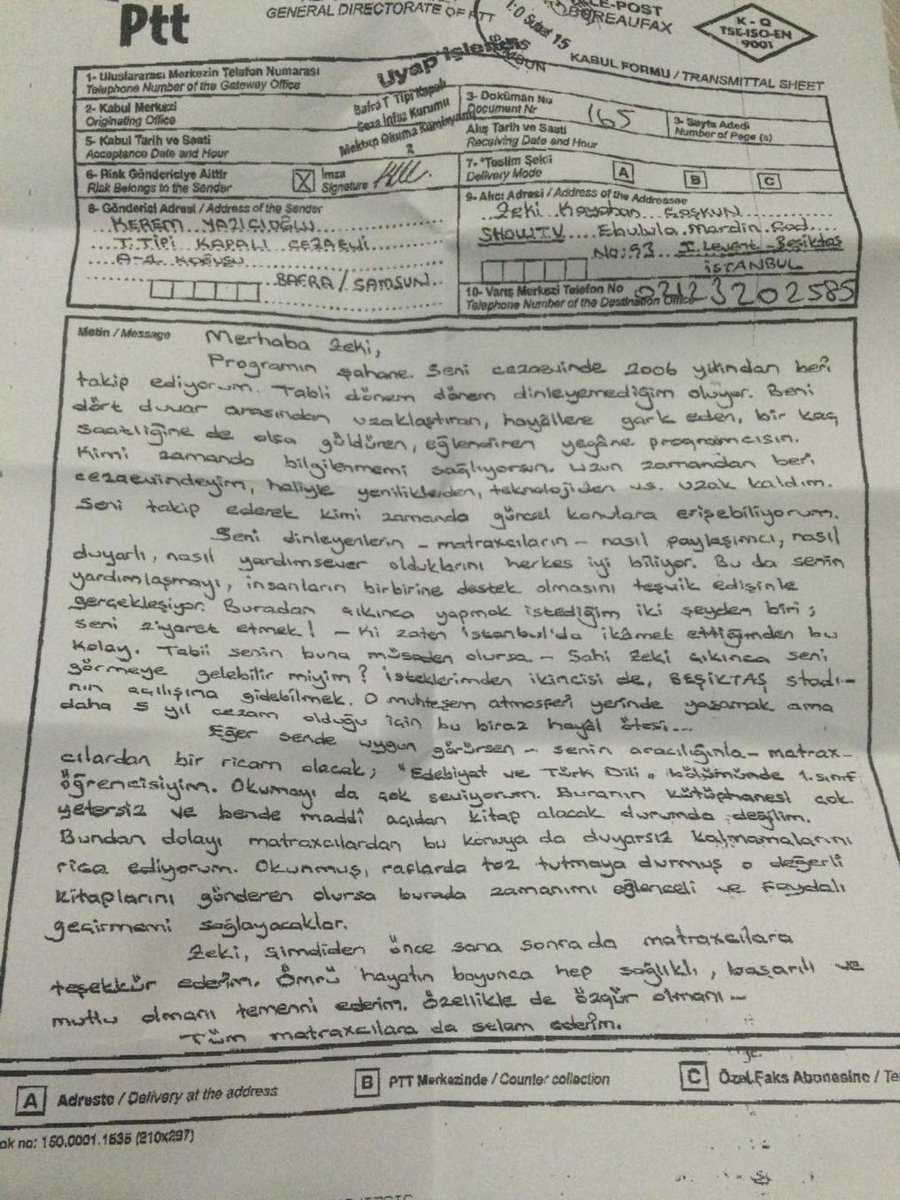 Ptt
GENERAL DIRECTORATE OF PTT
TELE-POST
BUREAUFAX
10 Şubat 15
SAMSUN
K - Q
TSE-ISO-EN
9001
KABUL FORMU / TRANSMITTAL SHEET
Uyap işlem
1- Uluslararası Merkezin Telefon Numarası
Telephone Number of the Gateway Office
2- Kabul Merkezi
Originating Office
Bafra T Tipi Kapalı
Ceza İnfaz Kurumu
Mektup Okuma Komisyonu
2
3- Doküman No
Document Nr
165
3- Sayfa Adedi
Number of Page (s)
5- Kabul Tarih ve Saati
Acceptance Date and Hour
Alış Tarih ve Saati
Receiving Date and Hour
6- Risk Göndericiye Aittir
Risk Belongs to the Sender
X
İmza
Signature
7- *Teslim Şekli
Delivery Mode
A
B
C
8- Gönderici Adresi / Address of the Sender
KEREM YAZICIOĞLU
T. TİPİ KAPALI CEZAEVİ
A-1 KOĞUŞU
BAFRA / SAMSUN
9- Alıcı Adresi / Address of the Addressee
Zeki Kayahan Coşkun
SHOW TV Ebulula Mardin Cad.
No: 93 1. Levent - Beşiktaş
İSTANBUL
10- Varış Merkezi Telefon No
Telephone Number of the Destination Office
02123202585
Metin / Message
Merhaba Zeki,
Programın şahane. Seni cezaevinde 2006 yılından beri
takip ediyorum. Tabii dönem dönem dinleyemediğim oluyor. Beni
dört duvar arasından uzaklaştıran, hayâllere gark eden, bir kaç
saatliğine de olsa güldüren, eğlendiren yegâne programcısın.
Kimi zamanda bilgilenmemi sağlıyorsun. Uzun zamandan beri
cezaevindeyim, haliyle yeniliklerden, teknolojiden vs. uzak kaldım.
Seni takip ederek kimi zamanda güncel konulara erişebiliyorum.
Seni dinleyenlerin - matraxcıların - nasıl paylaşımcı, nasıl
duyarlı, nasıl yardımsever olduklarını herkes iyi biliyor. Bu da senin
yardımlaşmayı, insanların birbirine destek olmasını teşvik edişinle
gerçekleşiyor. Buradan çıkınca yapmak istediğim iki şeyden biri;
seni ziyaret etmek! - Ki zaten İstanbul'da ikâmet ettiğimden bu
kolay. Tabii senin buna müsaden olursa - Sahi Zeki çıkınca seni
görmeye gelebilir miyim? İsteklerimden ikincisi de, BEŞİKTAŞ stadı-
nın açılışına gidebilmek. O muhteşem atmosferi yerinde yaşamak ama
daha 5 yıl cezam olduğu için bu biraz hayâl ötesi...
Eğer sende uygun görürsen - senin aracılığınla - matrax-
cılardan bir ricam olacak; "Edebiyat ve Türk Dili" bölümünde 1. sınıf
öğrencisiyim. Okumayı da çok seviyorum. Buranın kütüphanesi çok
yetersiz ve bende maddî açıdan kitap alacak durumda değilim.
Bundan dolayı matraxcılardan bu konuya da duyarsız kalmamalarını
rica ediyorum. Okunmuş, raflarda toz tutmaya durmuş o değerli
kitaplarını gönderen olursa burada zamanımı eğlenceli ve faydalı
geçirmemi sağlayacaklar.
Zeki, şimdiden önce sana sonra da matraxcılara
teşekkür ederim. Ömrü hayatın boyunca hep sağlıklı, başarılı ve
mutlu olmanı temenni ederim. Özellikle de özgür olmanı -
Tüm matraxcılara da selam ederim.
A Adreste / Delivery at the address
B PTT Merkezinde / Counter collection
C Özel Faks Abonesine / Te
ok no: 150.0001.1535 (210x297)